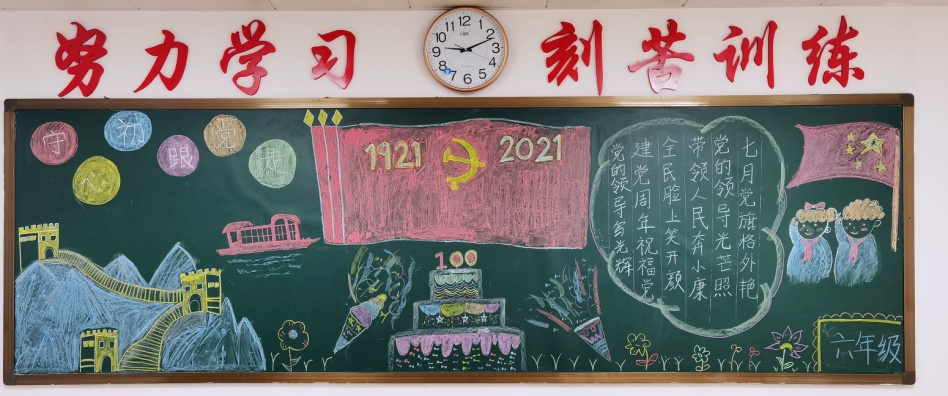 努力学习
刻苦训练
12 1 2 3 4 5 6 7 8 9 10 11
守初心
跟党走
1921
2021
100
七月党旗格外艳
党的领导光芒照
带领人民奔小康
全民脸上笑开颜
建党周年祝福党
党的领导多光辉
六年级